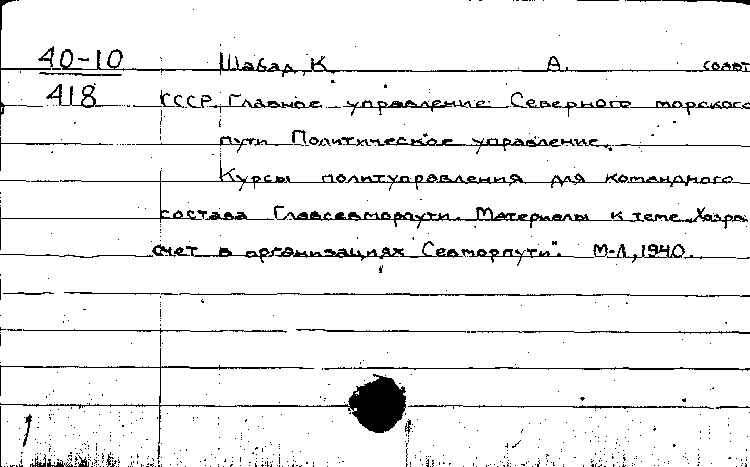 40-10 Шабад, К. А. сост
418 СССР. Главное управление Северного морского
пути. Политическое управление.
Курсы политуправления для командного
состава Главсевморпути. Материалы к теме „Хозрас
счет в организациях Севморпути". М-Л, 1940.